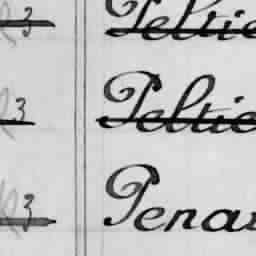 3 Peltie
3 Peltie
3 Penar